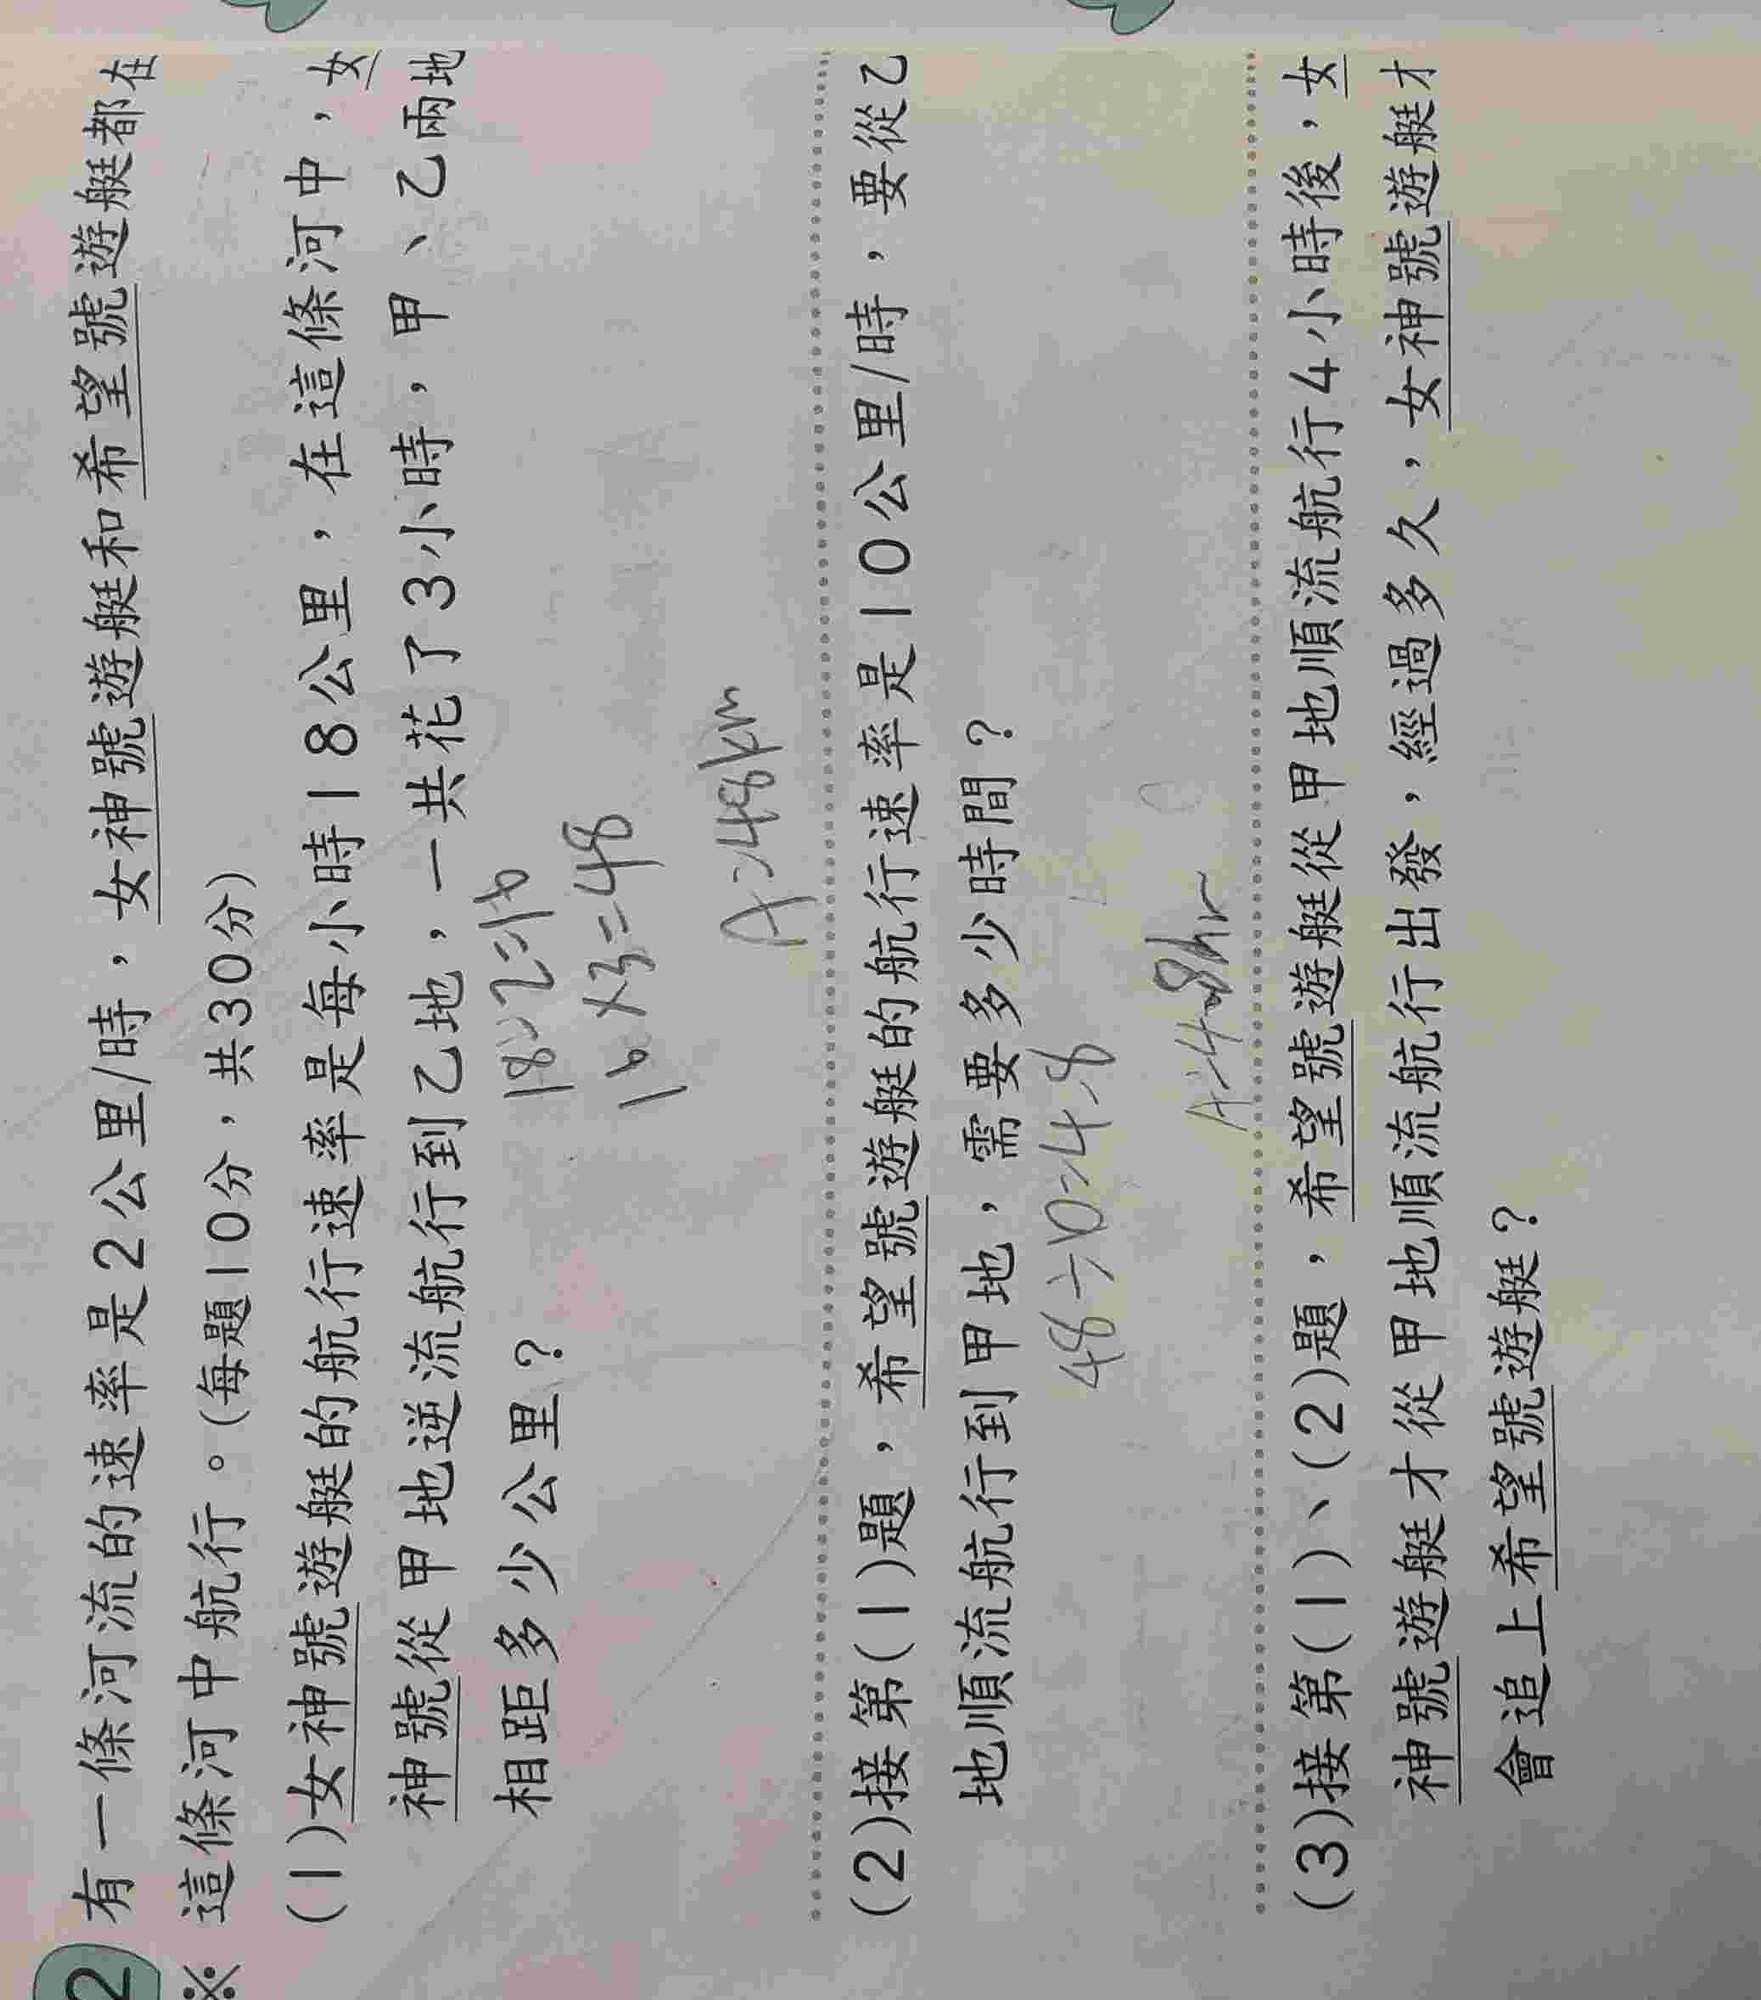 2 有一條河流的速率是2公里/時，女神號遊艇和希望號遊艇都在
※ 這條河中航行。(每題10分，共30分)
(1)女神號遊艇的航行速率是每小時18公里，在這條河中，女
神號從甲地逆流航行到乙地，一共花了3小時，甲、乙兩地
相距多少公里？
18-2=16
16×3=48
A=48km
(2)接第(1)題，希望號遊艇的航行速率是10公里/時，要從乙
地順流航行到甲地，需要多少時間？
48÷10=4.8
A=4.8hr
(3)接第(1)、(2)題，希望號遊艇從甲地順流航行4小時後，女
神號遊艇才從甲地順流航行出發，經過多久，女神號遊艇才
會追上希望號遊艇？